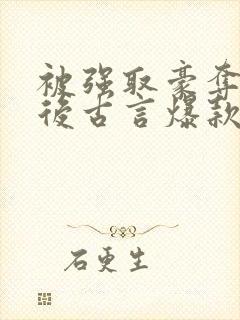 被强取豪夺
后古言爆款
石更生